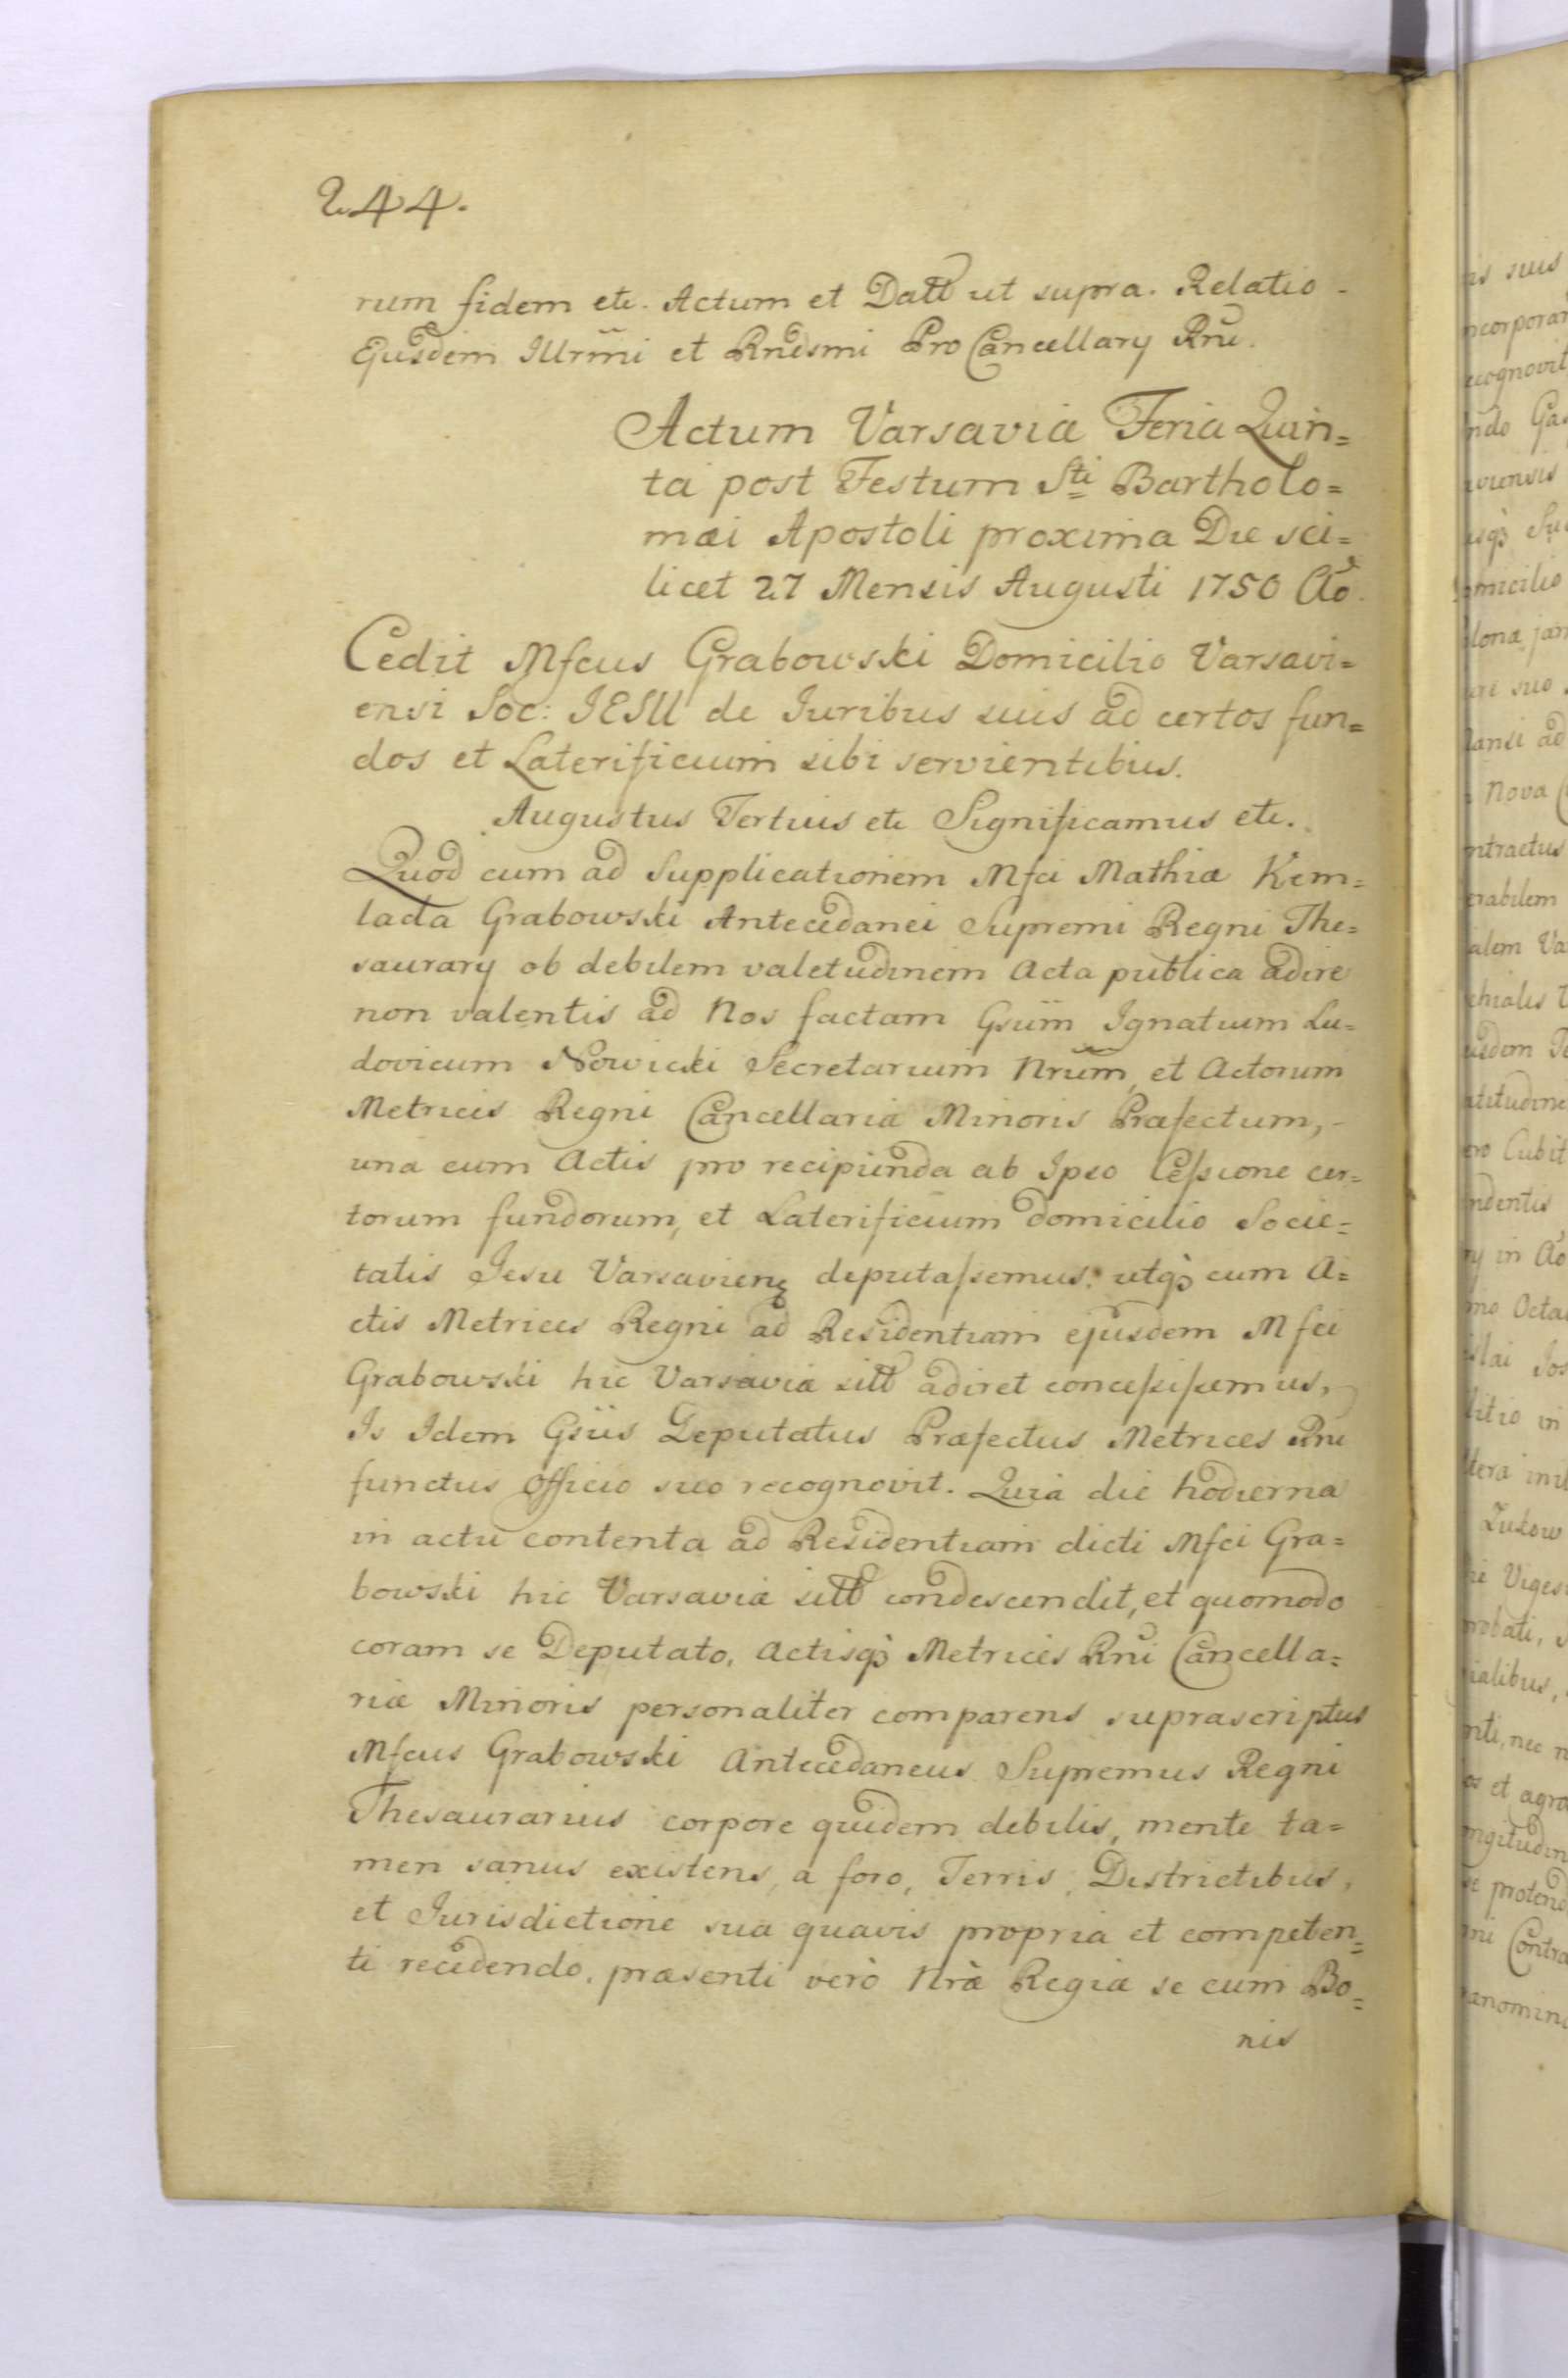 244.
rum fidem etc. Actum et Datt ut supra. Relatio
Ejusdem Illrmi et Rndsmi Pro Cancellary Rnu.
Actum Varsaviæ Feria Quin=
ta post Festum Sti Bartholo=
mæi Apostoli proxima Die sci=
licet 27 Mensis Augusti 1750 Ao.
Cedit Mfcus Grabowski Domicilio Varsavi=
ensi Soc: IESU de Iuribus suis ad certos fun=
dos et Laterificium sibi servientibus.
Augustus Tertius etc Significamus etc.
Quod cum ad Supplicationem Mfci Mathiæ Kem=
lada Grabowski Antecedanei Supremi Regni The=
saurary ob debilem valetudinem Acta publica adire
non valentis ad Nos factam Gsum Ignatium Lu=
dovicum Nowicki Secretarium Nrum, et Actorum
Metrices Regni Cancellariæ Minoris Præfectum,
una cum Actis pro recipienda ab Ipso Cessione cer=
torum fundorum, et Laterificium domicilio Socie=
tatis Jesu Varsavien deputassemus: utq cum A=
ctis Metrices Regni ad Residentiam ejusdem Mfci
Grabowski hic Varsaviæ sitt adiret concessissemus,
Is Idem Gsus Deputatus Præfectus Metrices Rni
functus Officio suo recognovit. Quia die hodierna
in actu contenta ad Residentiam dicti Mfci Gra=
bowski hic Varsaviæ sitt condescendit, et quomodo
coram se Deputato, Actisq Metrices Rni Cancella=
riæ Minoris personaliter comparens suprascriptus
Mfcus Grabowski Antecedaneus Supremus Regni
Thesaurarius corpore quidem debilis, mente ta=
men sanus existens, a foro, Terris, Districtibus,
et Jurisdictione sua quavis propria et competen=
ti recedendo, præsenti verò Nræ Regiæ se cum Bo=
nis